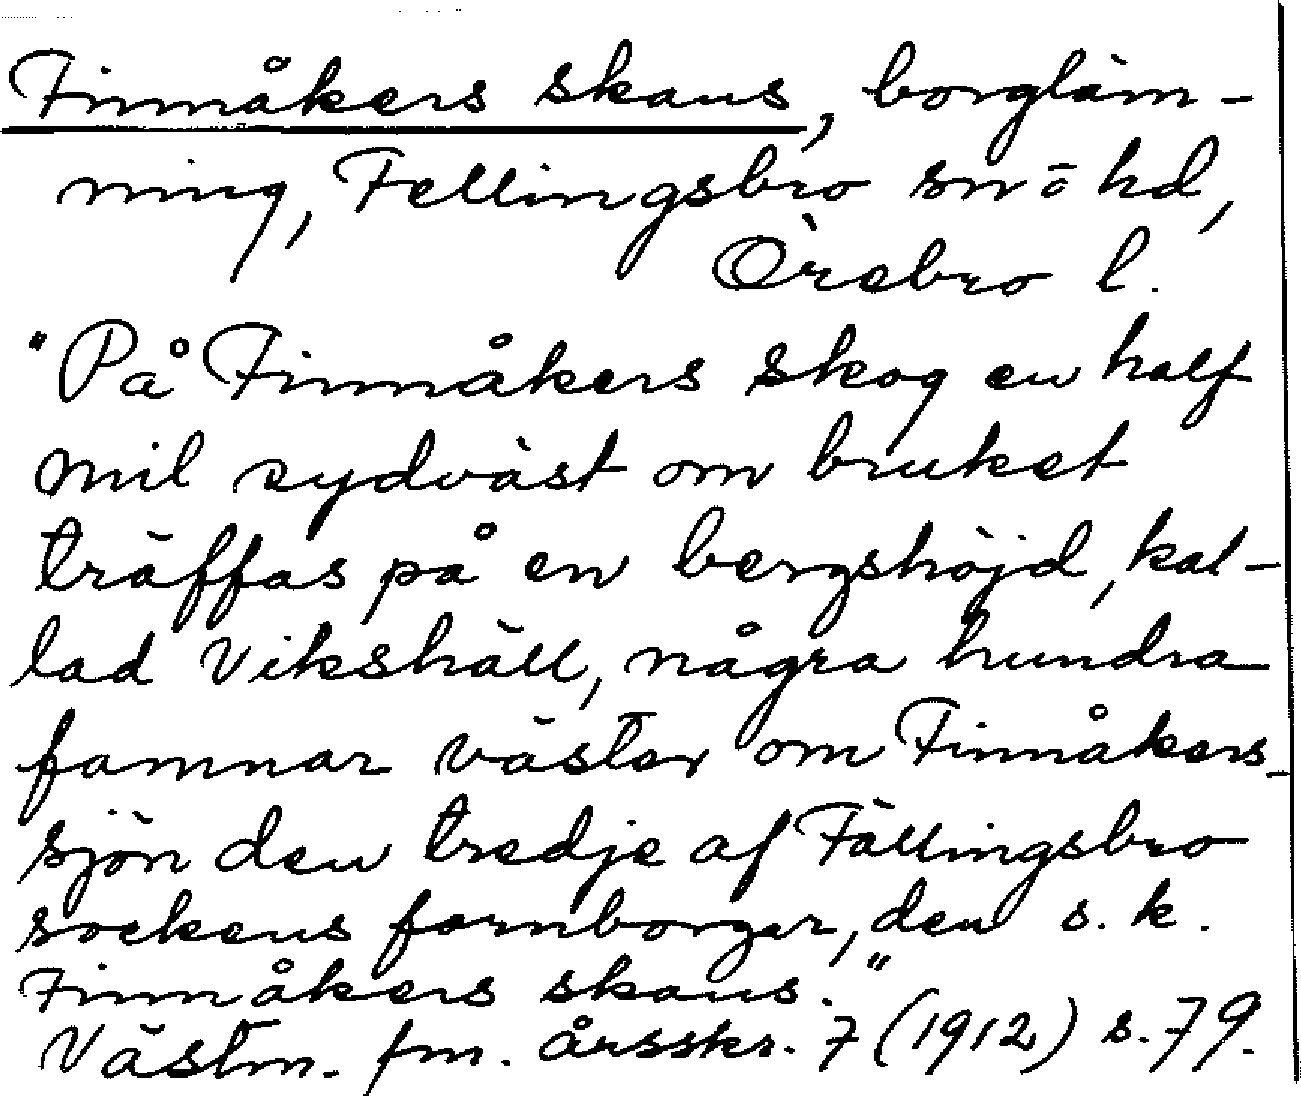 Finnåkers skans, borgläm-
ning, Fellingsbro sn o hd,
Örebro l.
"På Finnåkers skog en half
mil sydväst om bruket
träffas på en bergshöjd, kal-
lad Vikshäll, några hundra
famnar väster om Finnåkers-
sjön den tredje af Fällingsbro
sockens fornborgar, den s. k.
Finnåkers skans."
Västm. fm. årsskr. 7 (1912) s. 79.